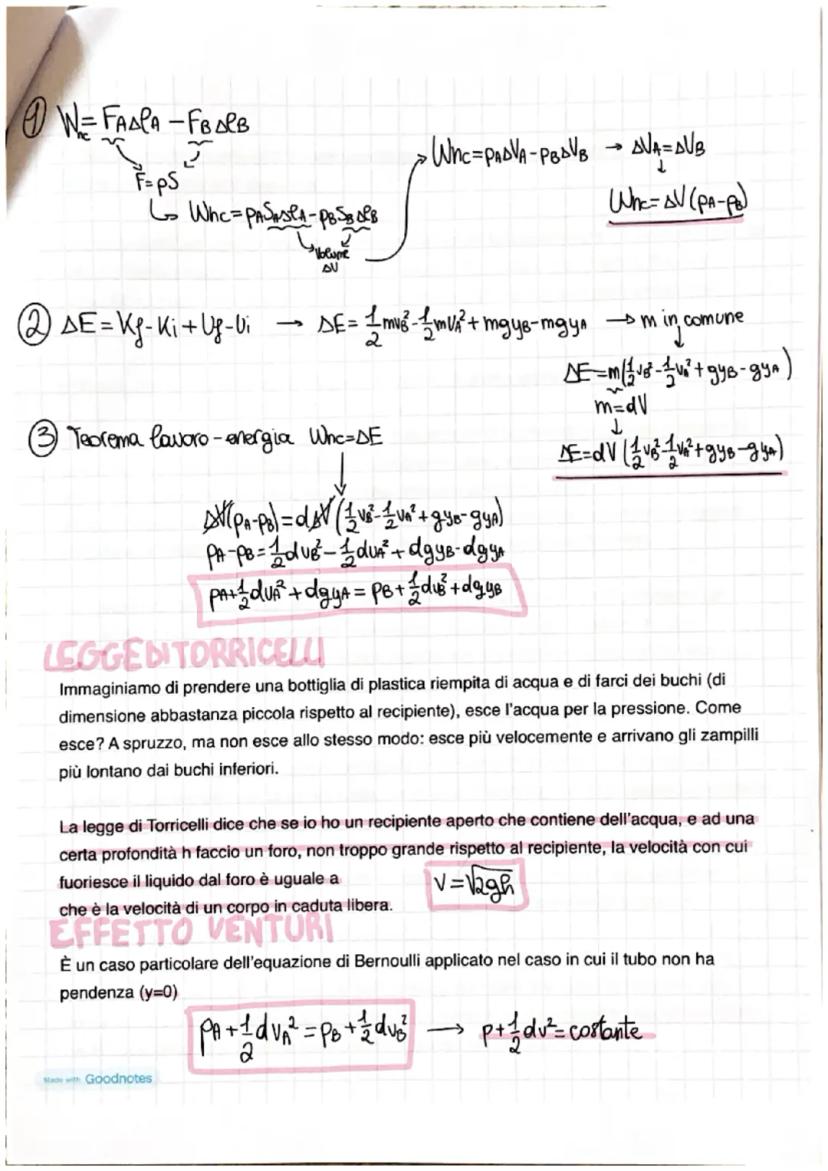 ① Wnc = FAΔlA − FBΔlB
F=pS
Wnc=pASAΔlA−pBSBΔlB
Volume
ΔV
Wnc=pAΔVA−pBΔVB → ΔVA=ΔVB
Wnc=ΔV(pA−pB)
② ΔE=Kf−Ki+Uf−Ui → ΔE=1/2mvB²−1/2mvA²+mgyB−mgyA → m in comune
ΔE=m(1/2vB²−1/2vA²+gyB−gyA)
m=dV
ΔE=dV(1/2vB²−1/2vA²+gyB−gyA)
③ Teorema lavoro-energia Wnc=ΔE
ΔV(pA−pB)=dΔV(1/2vB²−1/2vA²+gyB−gyA)
pA−pB=1/2dvB²−1/2dvA²+dgyB−dgyA
pA+1/2dvA²+dgyA=pB+1/2dvB²+dgyB
LEGGE DI TORRICELLI
Immaginiamo di prendere una bottiglia di plastica riempita di acqua e di farci dei buchi (di
dimensione abbastanza piccola rispetto al recipiente), esce l'acqua per la pressione. Come
esce? A spruzzo, ma non esce allo stesso modo: esce più velocemente e arrivano gli zampilli
più lontano dai buchi inferiori.
La legge di Torricelli dice che se io ho un recipiente aperto che contiene dell'acqua, e ad una
certa profondità h faccio un foro, non troppo grande rispetto al recipiente, la velocità con cui
fuoriesce il liquido dal foro è uguale a
v=√2gh
che è la velocità di un corpo in caduta libera.
EFFETTO VENTURI
È un caso particolare dell'equazione di Bernoulli applicato nel caso in cui il tubo non ha
pendenza (y=0)
pA+1/2dvA²=pB+1/2dvB² → p+1/2dv²=costante
Made with Goodnotes